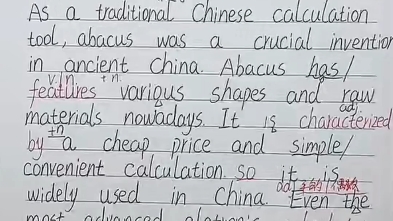 As a traditional Chinese calculation
tool, abacus was a crucial invention
in ancient China. Abacus has/
v. / n. + n.
features various shapes and raw
adj.
materials nowadays. It is characterized
+n
by a cheap price and simple/
convenient calculation. So it is
widely used in China. Even the
most advanced